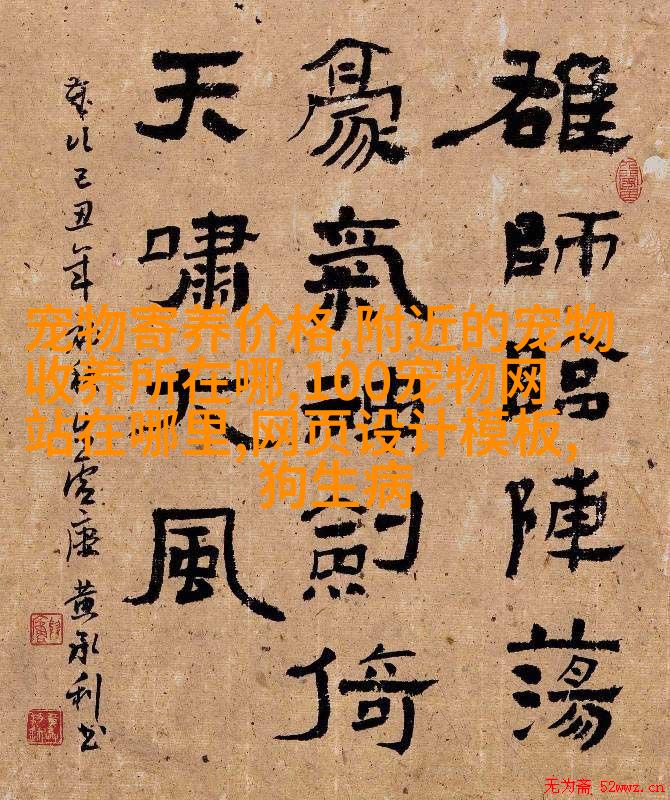 雄師臨陣蕩
豪氣 劍倚
天嘯 風
歲次己丑年 黄承利书
宠物寄养价格,附近的宠物
收养所在哪,100宠物网
站在哪里,网页设计模板,
狗生病
无为斋 52wwz.cn